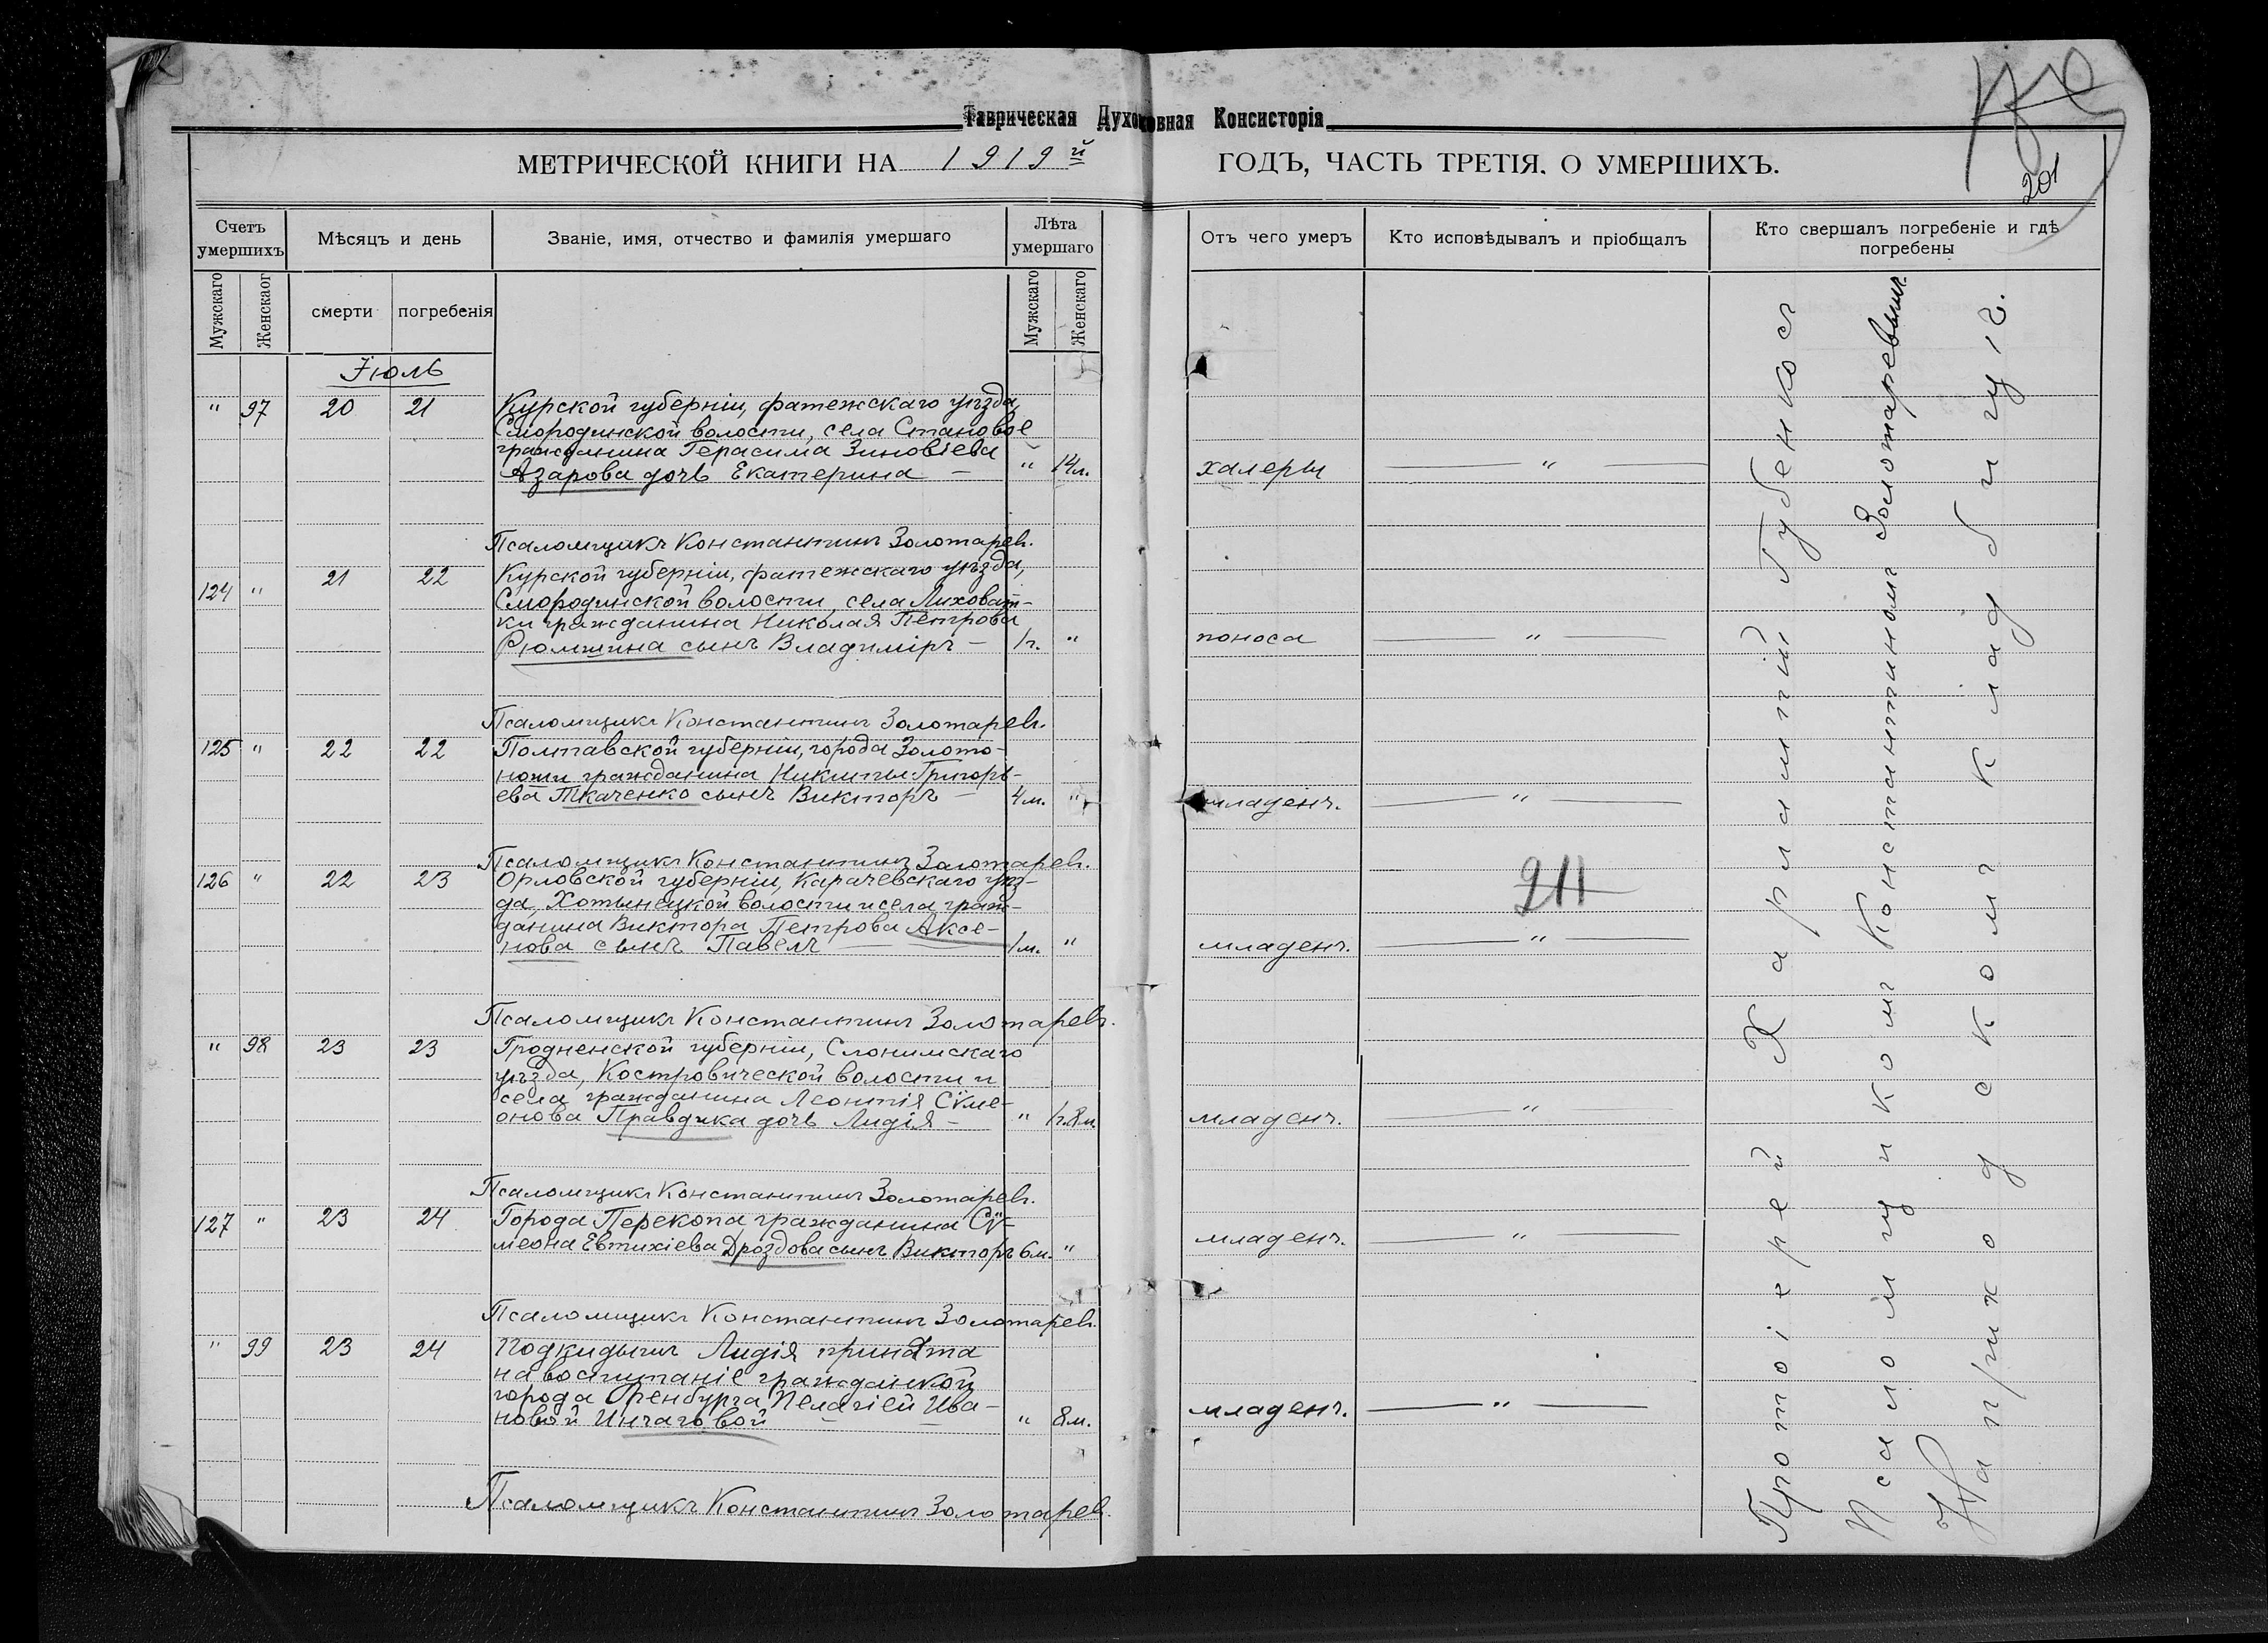 Таврическая Духовная Консисторія
МЕТРИЧЕСКОЙ КНИГИ НА 1919й ГОДЪ, ЧАСТЬ ТРЕТІЯ. О УМЕРШИХЪ.
201
Счетъ умершихъ
Мѣсяцъ и день
Званіе, имя, отчество и фамилія умершаго
Лѣта умершаго
Отъ чего умеръ
Кто исповѣдывалъ и пріобщалъ
Кто свершалъ погребеніе и гдѣ погребены
Мужскаго
Женскаго
смерти
погребенія
Мужскаго
Женскаго
Іюль
" 97 20 21 Курской губерніи, фатежскаго уѣзда,
Смородинской волости, села Становое
гражданина Герасима Зиновіева
Азарова дочь Екатерина — " 14л. халеры — " —
Псаломщикъ Константинъ Золотаревъ.
124 " 21 22 Курской губерніи, фатежскаго уѣзда,
Смородинской волости, села Лиховат-
ки гражданина Николая Петрова
Рюмшина сынъ Владиміръ — 1г. " поноса — " —
Псаломщикъ Константинъ Золотаревъ.
125 " 22 22 Полтавской губерніи, города Золото-
ноши гражданина Никиты Григорь-
ева Ткаченко сынъ Викторъ — 4м. " младенч. — " —
Псаломщикъ Константинъ Золотаревъ.
126 " 22 23 Орловской губерніи, Карачевскаго уѣз-
да, Хотынецкой волости и села граж-
данина Виктора Петрова Аксе-
нова сынъ Павелъ — 1м. " младенч. — " —
211
Псаломщикъ Константинъ Золотаревъ.
" 98 23 23 Гродненской губерніи, Слонимскаго
уѣзда, Костровической волости и
села гражданина Леонтія Сѵме-
онова Правдика дочь Лидія — " 1г.8м. младенч. — " —
Псаломщикъ Константинъ Золотаревъ.
127 " 23 24 Города Перекопа гражданина Сѵ-
меона Евтихіева Дроздова сынъ Викторъ 6м. " младенч. — " —
Псаломщикъ Константинъ Золотаревъ.
" 99 23 24 Подкидышъ Лидія принята
на воспитаніе гражданкой
города Оренбурга Пелагіей Ива-
новой Инчаговой — " 8м. младенч. — " —
Псаломщикъ Константинъ Золотаревъ.
Протоіерей Харлампій Губенко съ
Псаломщикомъ Константиномъ Золотаревымъ.
На приходскомъ кладбищѣ.